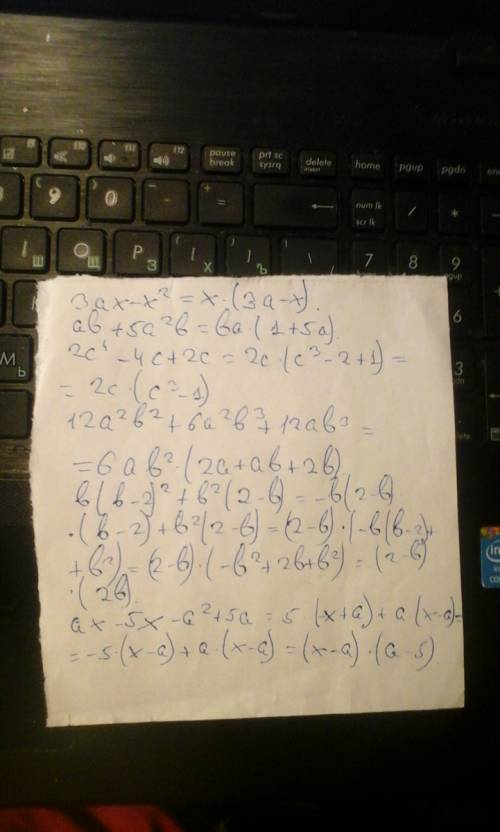 pause break
prt sc sysrq
delete insert
home
pgup
pgdn
num lk
scr lk
3ax-x² = x·(3a-x).
ab+5a²b = ba·(1+5a).
2c⁴-4c+2c = 2c·(c³-2+1) =
= 2c·(c³-1)
12a²b²+6a²b³+12ab³ =
= 6ab²·(2a+ab+2b)
b(b-2)²+b²(2-b) = -b(2-b)
·(b-2)+b²(2-b) = (2-b)·(-b(b-2)+
+b²) = (2-b)·(-b²+2b+b²) = (2-b)
·(2b).
ax-5x-a²+5a = 5(-x+a)+a·(x-a)=
= -5·(x-a)+a·(x-a) = (x-a)·(a-5)